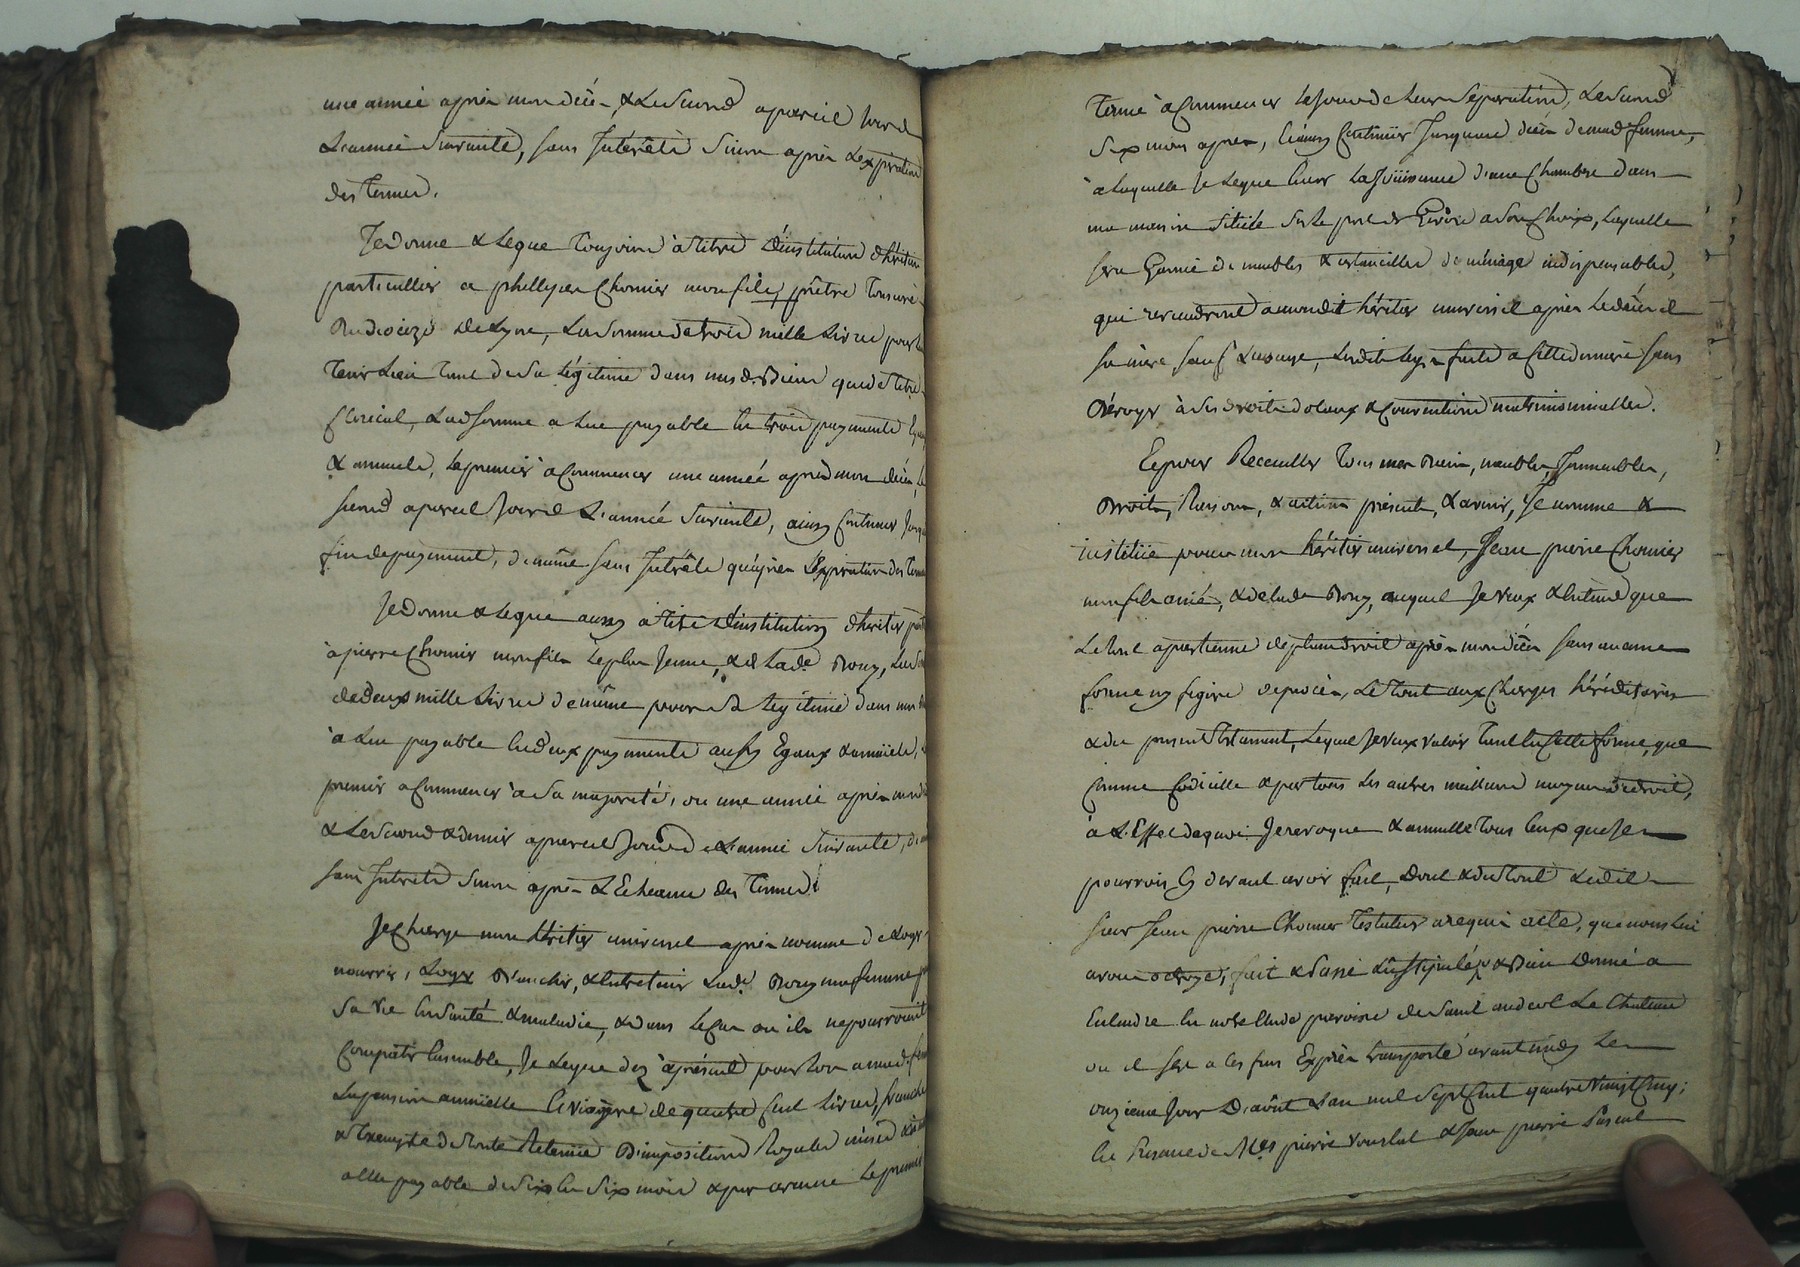 une année après mon décès, & le second a pareil jour de
L'année Suivante, sans Intérêts Sinon après L'expiration
des Termes.
Je donne & Legue Toujours à titre D'institution d'héritier
particullier a phellypes Chomier mon fils, prêtre Tonsuré
Du diocèze De Lyon, La Somme de trois mille Livres pour lui
Tenir Lieu Tant de Sa Légitime dans mesd. Biens que de titre
Clérical, Lad. somme a Lui payable En trois payments Egaux
& annuels, Le premier à Commencer une année après mon décès, le
second a pareil Jour de L'année Suivante, ainsy Continuer Jusqu
fin de payement, de même sans Intérêts qu'après L'Expiration des Termes
Je donne & Legue aussy à titre D'institution d'héritier part
à pierre Chomier mon fils Le plus Jeune, & de Lade. Rouy, La So
de deux mille Livres de même pour Sa Légitime dans mes
à Lui payable En deux payments aussy Egaux & annüels,
premier a Commencer à Sa majorité, ou une année après mon
& Le Second & dernier a pareil Jour de L'année Suivante,
sans Intérêts Sinon après L'Echeance des Termes.
Je Charge mon héritier universel après nommé de Loger
nourrir, Loger Blanchir, & Entretenir Lade. Rouy ma femme
Sa vie En Santé & maladie, & dans Le Cas ou ils ne pourroint
Compatir Ensemble, Je Legue dez à présent pour Lors a mad. femme
La pension annüelle & viagère de quatre Cent Livres, franche
& Exempte de toute Retenüe D'impositions Royales
a Elle payable de Six En Six mois & par avance Le premier
Terme à Commencer Le Jour de Leur Séparation, Le Second
Six mois après, & ainsy Continuer Jusqu'au décès de mad. femme,
à Laquelle Je Legue Encor La Joüissance d'une Chambre dans
ma maison Située Sur Le port de Givors a Son Choix, Laquelle
sera Garnie de meubles & ustancilles de ménage indispensables,
qui reviendront a mondit héritier universel après Le décès de
sa mère, sauf L'usage, Lesdits Legs faits a Cette dernière sans
Déroger à Ses droits dotaux & Conventions matrimonialles.
Et pour Receuillir Tous mes Biens, meubles Immeubles,
Droits, Raisons, & actions présents, & avenir, Je nomme &
institüe pour mon héritier universel, Jean pierre Chomier
mon fils ainé, & de Lade Rouy, auquel Je veux & Entend que
Le tout apartienne de plein droit après mon décès sans aucune
forme ny figure de procès, Le Tout aux Charges héréditaires
& du present Testament, Lequel Je veux valoir Tant En Cette forme, que
Comme Codicille & par tous Les autres meilleurs moyens de droit,
à L'Effet de quoi Je revoque & annulle Tous Ceux que Je
pourrois Cy devant avoir fait, Dont & du Tout Ledit
Sieur Jean pierre Chomier Testateur a requis acte, que nous Lui
avons octroyé, fait & Passé Lu Stipulé & Bien Donné a
Entendre En notre Etude paroisse de Saint andeol Le Chateau
ou il s'est a Ces fins Exprès transporté avant midy Le
onzieme Jour D'août L'an mil Sept Cent quatre vingt Cinq;
En Presence de Mes pierre & Jean pierre Pascal